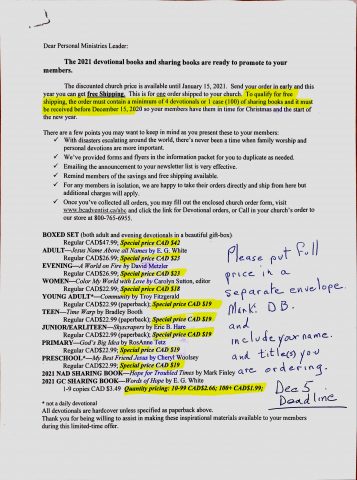 Dear Personal Ministries Leader:
The 2021 devotional books and sharing books are ready to promote to your
members.
The discounted church price is available until January 15, 2021. Send your order in early and this
year you can get free Shipping. This is for one order shipped to your church. To qualify for free
shipping, the order must contain a minimum of 4 devotionals or 1 case (100) of sharing books and it must
be received before December 15, 2020 so your members have them in time for Christmas and the start of
the new year.
There are a few points you may want to keep in mind as you present these to your members:
✓ With disasters escalating around the world, there's never been a time when family worship and
personal devotions are more important.
✓ We've provided forms and flyers in the information packet for you to duplicate as needed.
✓ Emailing the announcement to your newsletter list is very effective.
✓ Remind members of the savings and free shipping available.
✓ For any members in isolation, we are happy to take their orders directly and ship from here but
additional charges will apply.
✓ Once you've collected all orders, you may fill out the enclosed church order form, visit
www.bcadventist.ca/abc and click the link for Devotional orders, or Call in your church's order to
our store at 800-765-6955.
BOXED SET (both adult and evening devotionals in a beautiful gift-box)
Regular CAD$47.99; Special price CAD $42
ADULT—Jesus Name Above all Names by E. G. White
Regular CAD$26.99; Special price CAD $23
EVENING—A World on Fire by David Metzler
Regular CAD$26.99; Special price CAD $23
WOMEN—Color My World with Love by Carolyn Sutton, editor
Regular CAD$22.99; Special price CAD $18
YOUNG ADULT*—Community by Troy Fitzgerald
Regular CAD$22.99 (paperback); Special price CAD $19
TEEN—Time Warp by Bradley Booth
Regular CAD$22.99 (paperback); Special price CAD $19
JUNIOR/EARLITEEN—Skyscrapers by Eric B. Hare
Regular CAD$22.99 (paperback); Special price CAD $19
PRIMARY—God's Big Idea by RosAnne Tetz
Regular CAD$22.99; Special price CAD $19
PRESCHOOL*—My Best Friend Jesus by Cheryl Woolsey
Regular CAD$22.99; Special price CAD $19
2021 NAD SHARING BOOK—Hope for Troubled Times by Mark Finley
2021 GC SHARING BOOK—Words of Hope by E. G. White
1-9 copies CAD $3.49 Quantity pricing: 10-99 CAD$2.66; 100+ CAD$1.99;
* not a daily devotional
All devotionals are hardcover unless specified as paperback above.
Thank you for being willing to assist in making these inspirational materials available to your members
during this limited-time offer.
Please put full
price in a
separate envelope.
Mark D.B.
and
include your name.
and title(s) you
are ordering.
Dec 5
Deadline